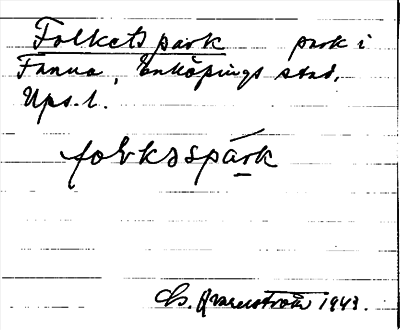 Folkets park park i
Fanna, Enköpings stad,
Ups. l.
folkspark
1943.